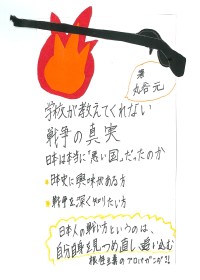 著
丸谷 元
学校が教えてくれない
戦争の真実
日本は本当に「悪い国」だったのか
日本史に興味がある方
戦争を深く知りたい方
日本人の戦い方というのは、
自分自身を見つめ直し、追い込む
根性主義のプロパガンダ!!